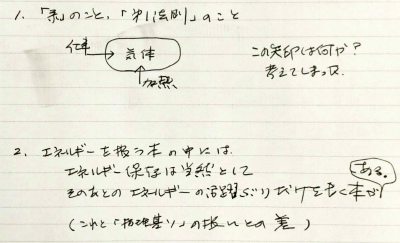 1. 「系」のこと、「第1法則」のこと
仕事
気体
加熱
この矢印は何か?
考えてしまった。
2. エネルギーを扱う本の中には
エネルギー保存は当然として
そのあとのエネルギーの活躍ぶりだけを書く本が
ある。
(これと「物理基」の扱いとの差)